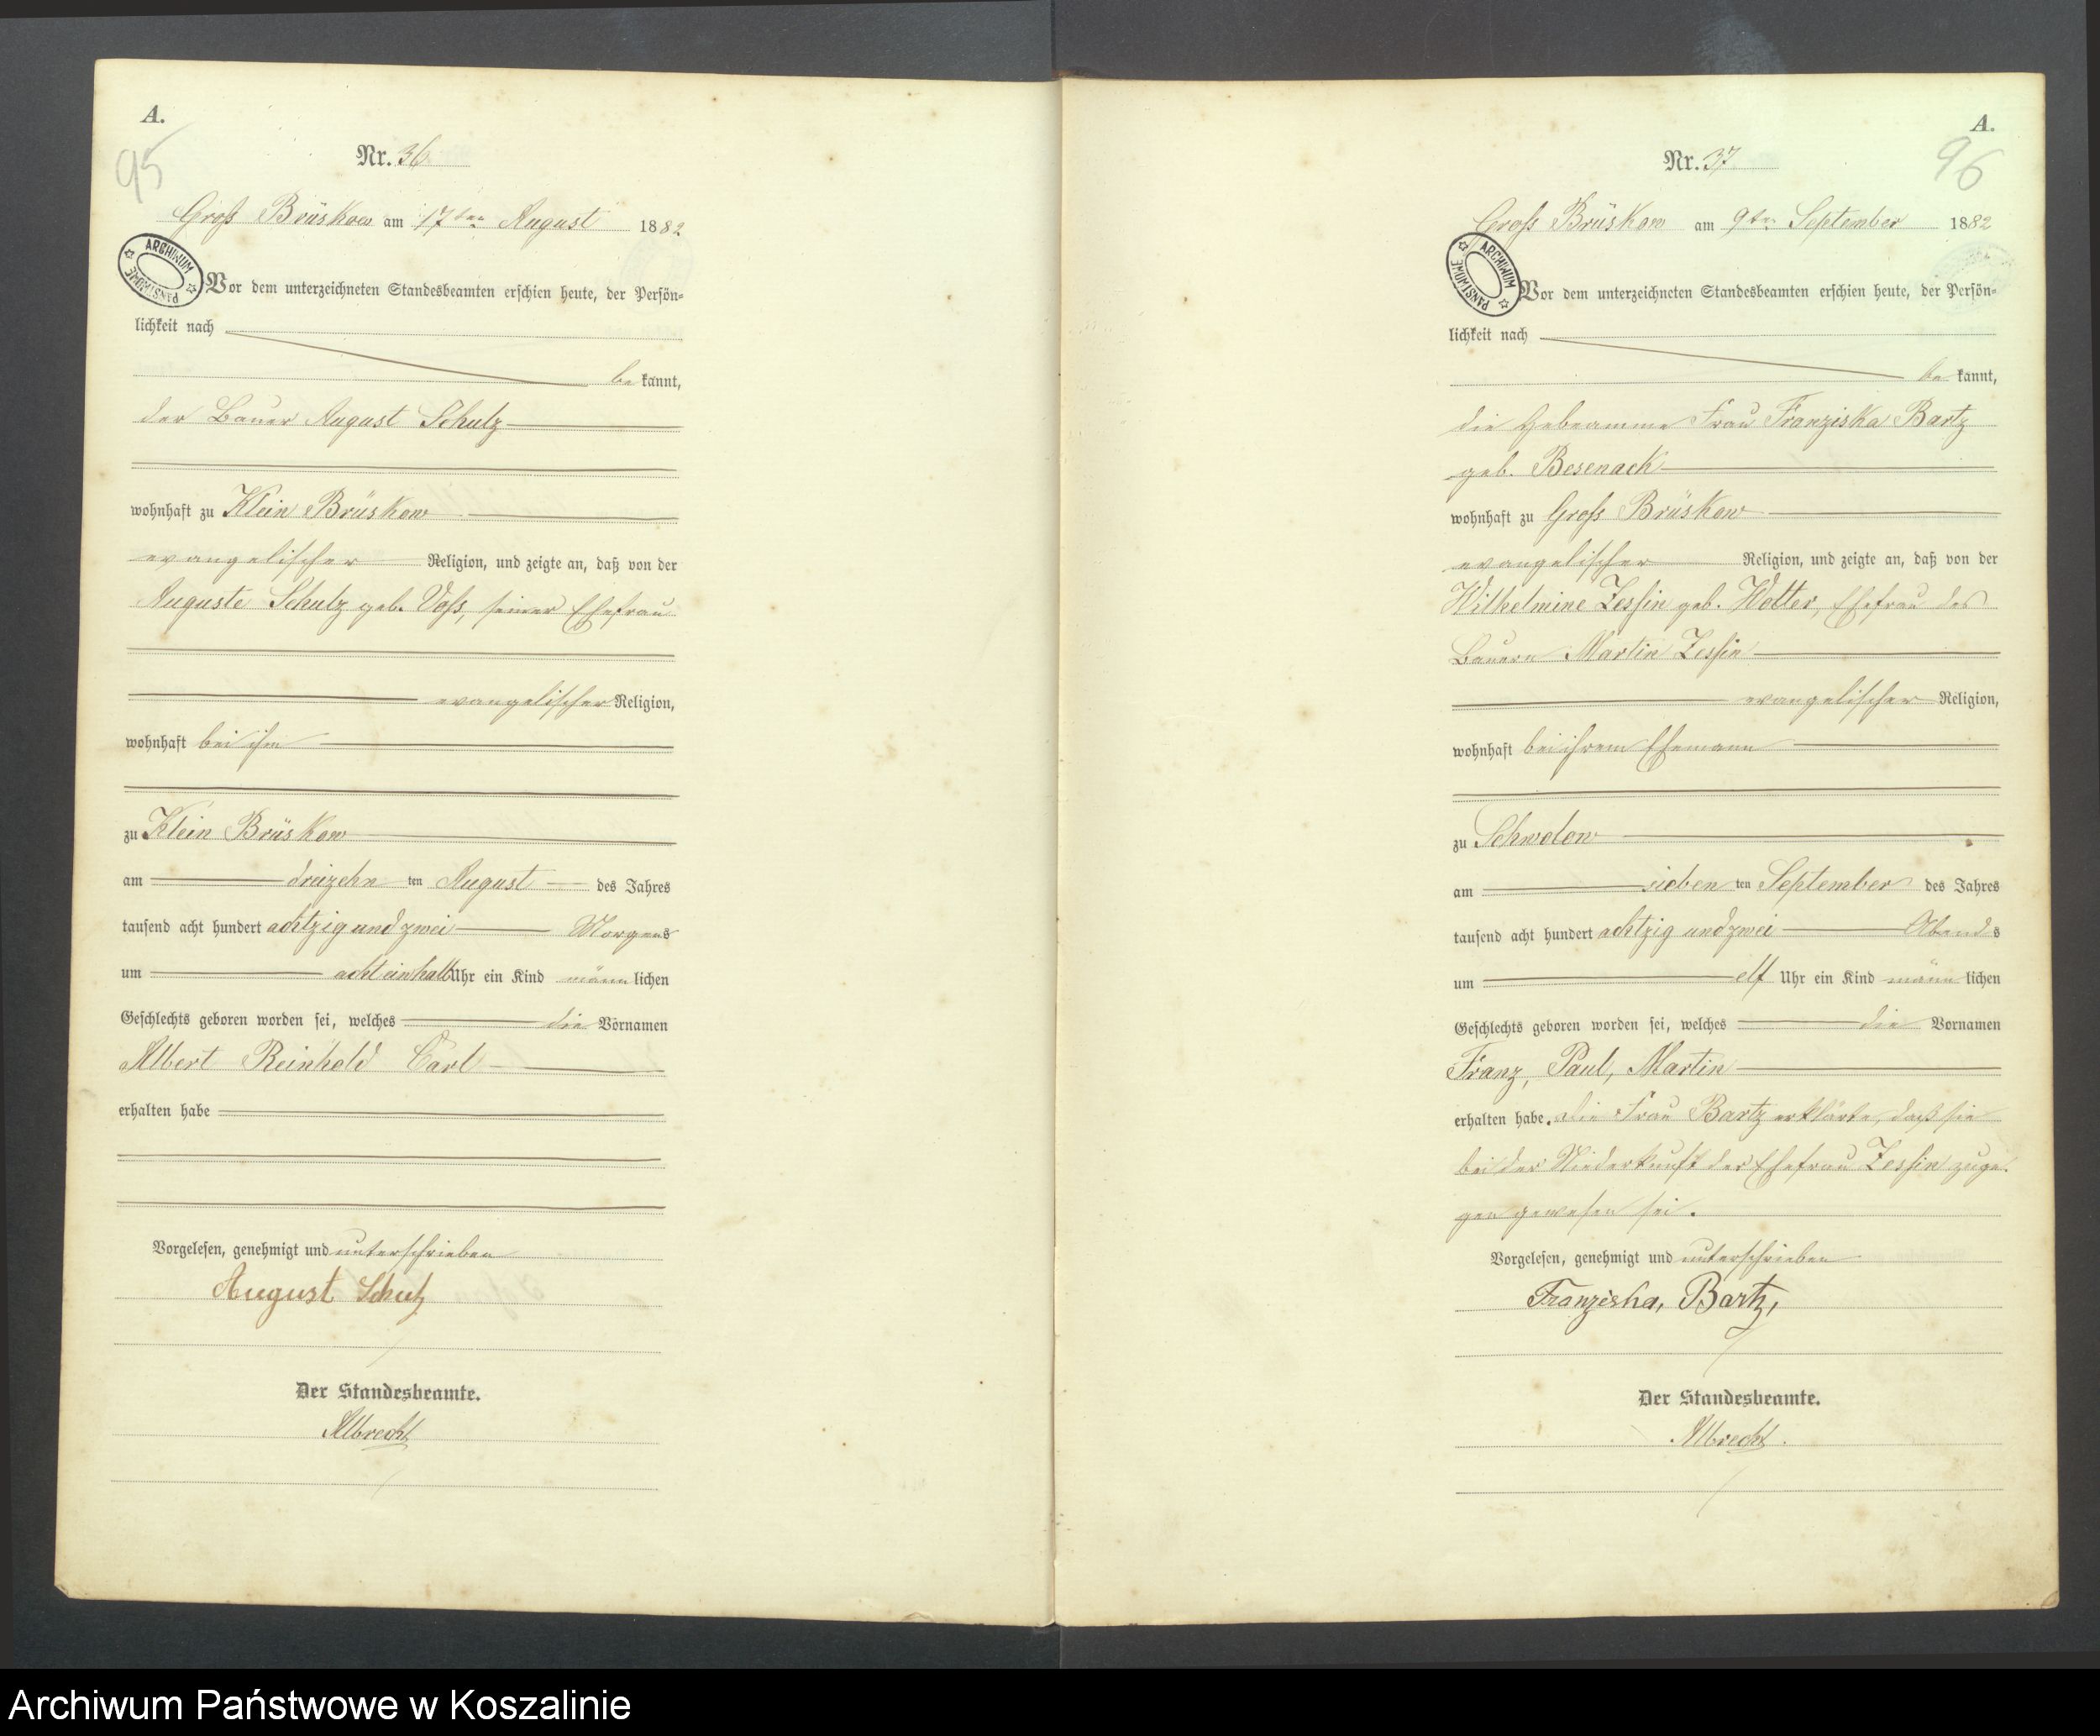 A.
95
Nr. 36.
Groß Brüskow am 17ten August 1882
ARCHIWUM PAŃSTWOWE
Vor dem unterzeichneten Standesbeamten erschien heute, der Persön-
lichkeit nach
bekannt,
der Bauer August Schulz
wohnhaft zu Klein Brüskow
evangelischer Religion, und zeigte an, daß von der
Auguste Schulz geb. Voß, seiner Ehefrau
evangelischer Religion,
wohnhaft bei ihm
zu Klein Brüskow
am dreizehn ten August des Jahres
tausend acht hundert achtzig und zwei Morgens
um acht einhalb Uhr ein Kind männlichen
Geschlechts geboren worden sei, welches die Vornamen
Albert Reinhold Carl
erhalten habe
Vorgelesen, genehmigt und unterschrieben
August Schulz
Der Standesbeamte.
Albrecht
A.
96
Nr. 37
Groß Brüskow am 9ten September 1882
ARCHIWUM PAŃSTWOWE
Vor dem unterzeichneten Standesbeamten erschien heute, der Persön-
lichkeit nach
bekannt,
die Hebeamme Frau Franziska Bartz
geb. Besenack
wohnhaft zu Groß Brüskow
evangelischer Religion, und zeigte an, daß von der
Wilhelmine Zessin geb. Wotter, Ehefrau des
Bauern Martin Zessin
evangelischer Religion,
wohnhaft bei ihrem Ehemann
zu Schwolow
am sieben ten September des Jahres
tausend acht hundert achtzig und zwei Abends
um elf Uhr ein Kind männlichen
Geschlechts geboren worden sei, welches die Vornamen
Franz, Paul, Martin
erhalten habe. Die Frau Bartz erklärte, daß sie
bei der Niederkunft der Ehefrau Zessin zuge-
gen gewesen sei.
Vorgelesen, genehmigt und unterschrieben
Franziska, Bartz,
Der Standesbeamte.
Albrecht.
Archiwum Państwowe w Koszalinie